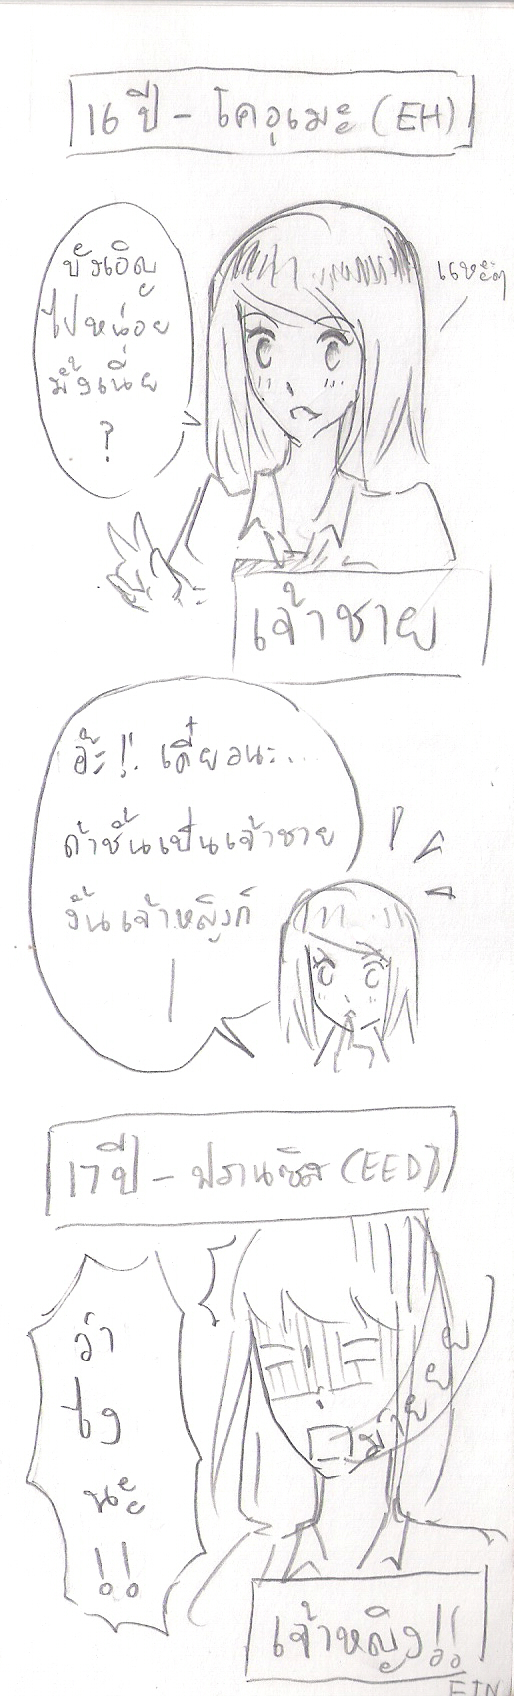 16 ปี - โคอุเมะ (EH)
บังเอิญ
ไปหน่อย
มั้งเนี่ย
?
แหะๆ
เจ้าชาย
อ๊ะ!! เดี๋ยวนะ...
ถ้าชั้นเป็นเจ้าชาย
งั้นเจ้าหญิงก็
|
17 ปี - ฟรานซิส (EED)
ว่า
ไง
นะ
!!
ม่ายยยย
เจ้าหญิง!!
FIN